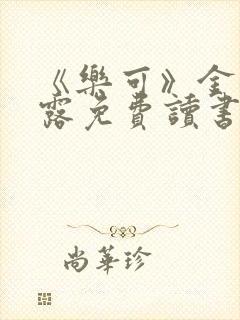 《樂可》全
露免費讀書
尚華珍